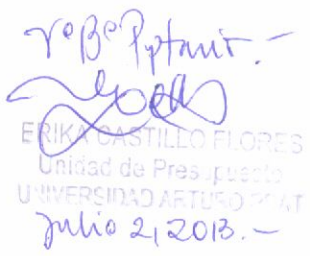 VºBº
ERIKA CASTILLO FLORES
Unidad de Presupuesto
UNIVERSIDAD ARTURO PRAT
Julio 2, 2013.-